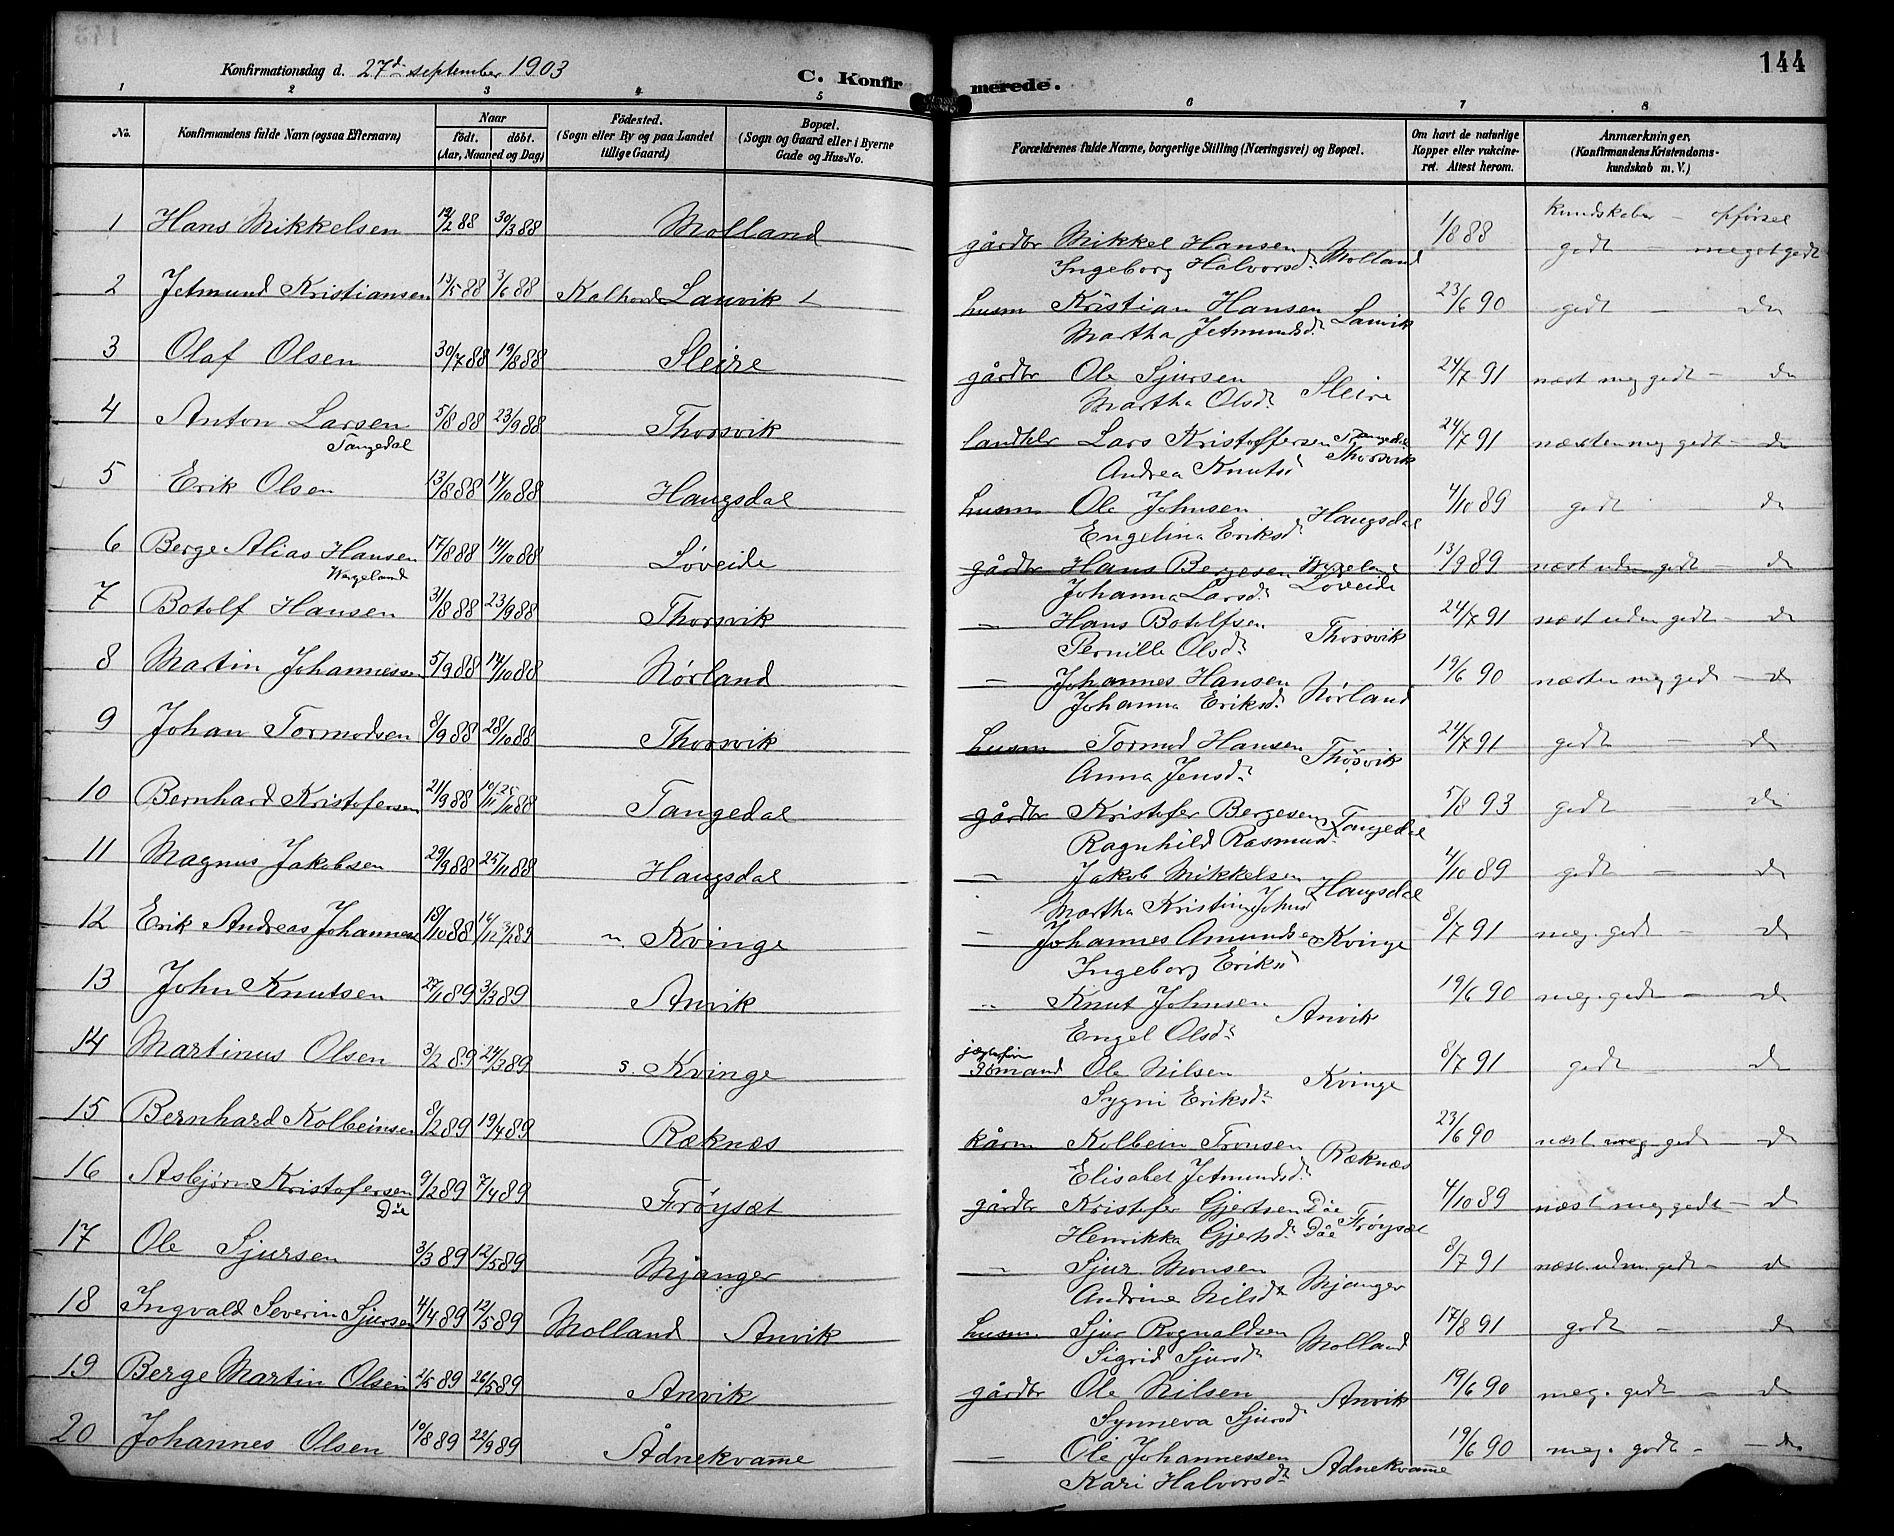 Konfirmationsdag d. 27d september 1903 C. Konfirmerede. 144
1 2 3 4 5 6 7 8
No. Konfirmandens fulde Navn (ogsaa Efternavn) Naar født. døbt. (Aar, Maaned og Dag) Fødested. (Sogn eller By og paa Landet tillige Gaard) Bopæl. (Sogn og Gaard eller i Byerne Gade og Hus-No. Forældrenes fulde Navne, borgerlige Stilling (Næringsvei) og Bopæl. Om havt de naturlige Kopper eller vakcineret. Attest herom. Anmærkninger. (Konfirmandens Kristendomskundskab m. V.)
kundskaber - opførsel
1 Hans Mikkelsen 19/2 88 30/3 88 Molland gårdbr Mikkel Hansen Molland 1/8 88 godt - meget godt
Ingeborg Halvorsd.
2 Jetmund Kristiansen 17/5 88 3/6 88 Lauvik husm Kristian Hansen Lauvik 23/6 90 godt - do
Martha Jetmundsd.
3 Olaf Olsen 30/7 88 19/8 88 Sleire gårdbr Ole Sjursen Sleire 24/7 91 næst meg godt - do
Martha Olsd.
4 Anton Larsen 5/8 88 23/9 88 Thorsvik landhdr Lars Kristoffersen Tangedal 24/7 91 næsten meg godt - do
Tangedal Andrea Knutsd Thorsvik
5 Erik Olsen 13/8 88 14/10 88 Haugsdal husm Ole Johnsen Haugsdal 4/10 89 godt - do
Engelina Eriksd.
6 Berge Alias Hansen 17/8 88 14/10 88 Løveide gårdbr Hans Bergesen Wergeland 13/9 89 næst uden godt - do
Wergeland Johanna Larsd. Løveide
7 Botolf Hansen 31/8 88 23/9 88 Thorsvik - Hans Botolfsen Thorsvik 24/7 91 næst uden godt - do
Pernille Olsd.
8 Martin Johannessen 5/9 88 14/10 88 Nørland - Johannes Hansen Nørland 19/6 90 næsten meg godt - do
Johanna Eriksd.
9 Johan Tormodsen 8/9 88 28/10 88 Thorsvik husm Tormod Hansen Thorsvik 24/7 91 godt - do
Anna Jensd.
10 Bernhard Kristofersen 21/9 88 Tangedal gårdbr Kristofer Bergesen Tangedal 5/8 93 godt - do
Ragnhild Rasmusd.
11 Magnus Jakobsen 29/9 88 25/11 88 Haugsdal - Jakob Mikkelsen Haugsdal 4/10 89 godt - do
Martha Kristina Johnsd
12 Erik Andreas Johannesen 18/10 88 n. Kvinge - Johannes Amundsen Kvinge 8/7 91 meg. godt - do
Ingeborg Eriksd
13 John Knutsen 27/1 89 3/3 89 Anvik - Knut Johnsen Anvik 19/6 90 meg. godt - do
Engel Olsd.
14 Martinus Olsen 3/2 89 24/3 89 s. Kvinge sømand Ole Nilsen Kvinge 8/7 91 godt - do
Sygni Eriksd.
15 Bernhard Kolbeinsen 8/2 89 19/4 89 Ræknæs kårm Kolbein Tronsen Ræknæs 23/6 90 næst meg. godt - do
Elisabet Jetmundsd.
16 Asbjørn Kristofersen 9/2 89 7/4 89 Frøysæt gårdbr Kristofer Gjertsen Døe Frøysæt 4/10 89 næst meg godt - do
Døe Henrikka Gjertsd. Døe
17 Ole Sjursen 3/3 89 12/5 89 Mjanger - Sjur Monsen Mjanger 8/7 91 næst. uden. godt - do
Andrine Nilsdt
18 Ingvald Severin Sjursen 4/4 89 12/5 89 Molland Anvik husm Sjur Rognaldsen Molland 17/8 91 godt - do
Sigrid Sjursdt
19 Berge Martin Olsen 2/5 89 26/5 89 Anvik gårdbr Ole Nilsen Anvik 19/6 90 meg. godt - do
Synneva Sjursd
20 Johannes Olsen 10/8 89 22/9 89 Ådnekvamme - Ole Johannessen Adnekvamme 19/6 90 meg. godt - do
Kari Halvorsdt